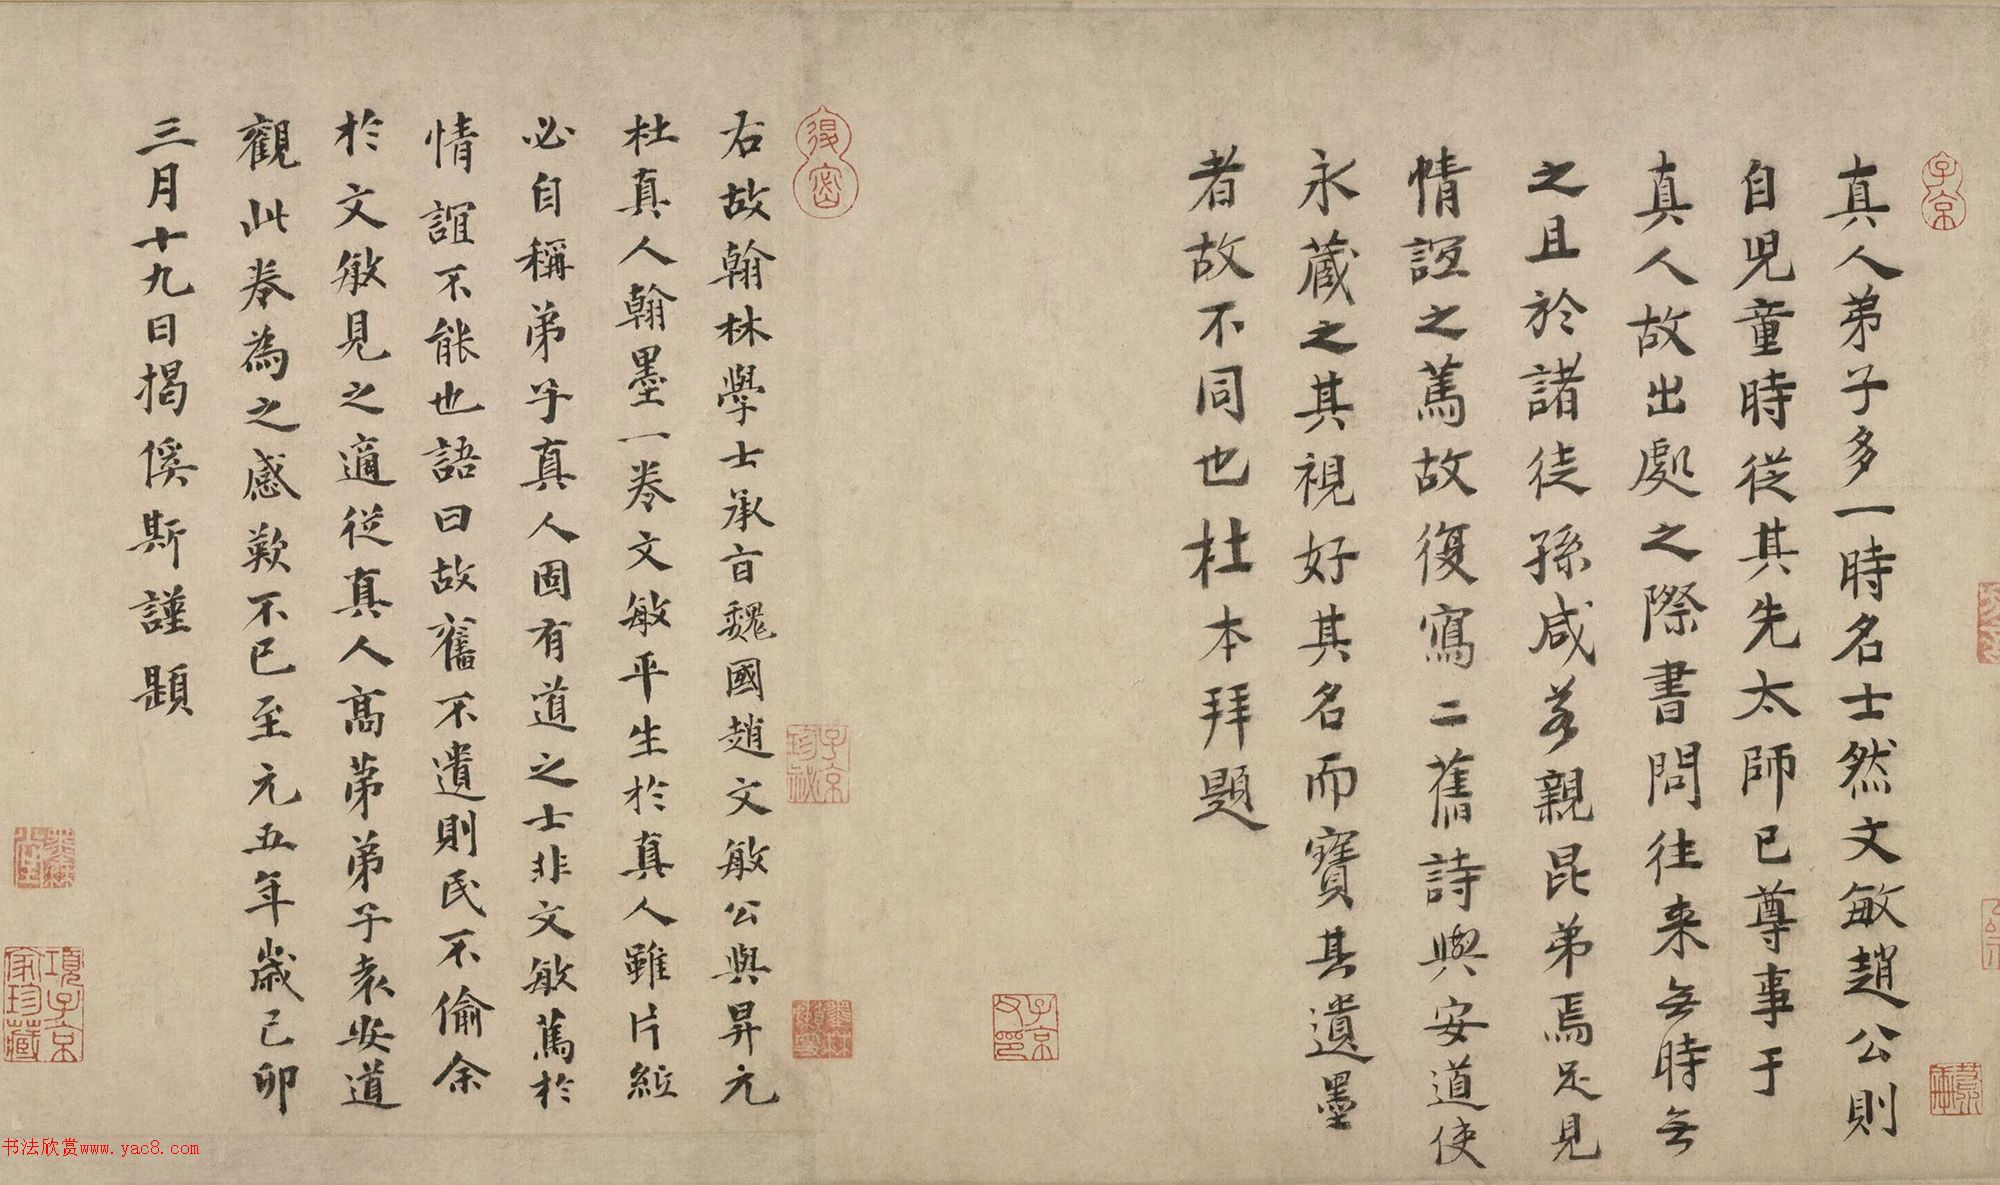 真人弟子多一時名士然文敏趙公則
自兒童時從其先太師已尊事于
真人故出處之際書問往来無時無
之且於諸徒孫咸若親昆弟焉足見
情誼之篤故復寫二舊詩與安道使
永藏之其視好其名而寶其遺墨
者故不同也杜本拜題
右故翰林學士承旨魏國趙文敏公與昇元
杜真人翰墨一卷文敏平生於真人雖片紙
必自稱弟子真人固有道之士非文敏篤於
情誼不能也語曰故舊不遺則民不偷余
於文敏見之適從真人高弟弟子袁安道
觀此卷為之感歎不已至元五年歲己卯
三月十九日揭傒斯謹題
子京
項子京
家珍藏
书法欣赏www.yac8.com